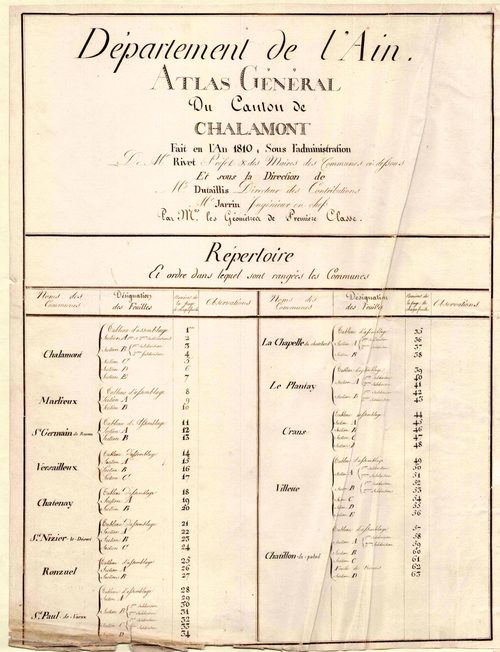 Département de l'Ain.
ATLAS GÉNÉRAL
Du Canton de
CHALAMONT
Fait en l'An 1810, Sous l'administration
De Mr Rivet Préfet & des Maires des Communes ci dessous
Et sous la Direction de
Mr Dutaillis Directeur des Contributions
Mr Jarrin Ingénieur en chef
Par Mrs les Géomètres de Première Classe.
Répertoire
Et ordre dans lequel sont rangées les Communes
Noms des Communes
Désignation des Feuilles
Observations
Noms des Communes
Désignation des Feuilles
Observations
Chalamont
Tableau d'assemblage 1
2
Section B 3
4
Section C 5
Section D 6
Section E 7
Marlieux
Tableau d'assemblage 8
Section A 9
Section B 10
St Germain de
Tableau d'Assemblage 11
Section A 12
Section B 13
Versailleux
Tableau d'assemblage 14
Section A 15
Section B 16
Section C 17
Chatenay
Tableau d'assemblage 18
Section A 19
Section B 20
St Nizier le Désert
Tableau d'assemblage 21
Section A 22
Section B 23
Section C 24
Ronzuel
Tableau d'assemblage 25
Section A 26
Section B 27
St Paul de Varax
Tableau d'assemblage 28
Section A 29
Section B 30
31
32
Section C 33
Section D 34
La Chapelle du
Tableau d'assemblage 35
Section A 36
37
Section B 38
Le Plantay
Tableau d'assemblage 39
40
41
42
43
Crans
Tableau d'assemblage 44
Section A 45
Section B 46
Section C 47
Section D 48
Villette
Tableau d'assemblage 49
Section A 50
51
Section B 52
53
Section C 54
Section D 55
Section E 56
Chatillon la palud
Tableau d'assemblage 57
Section A 58
59
Section B 60
Section C 61
62
Section D 63